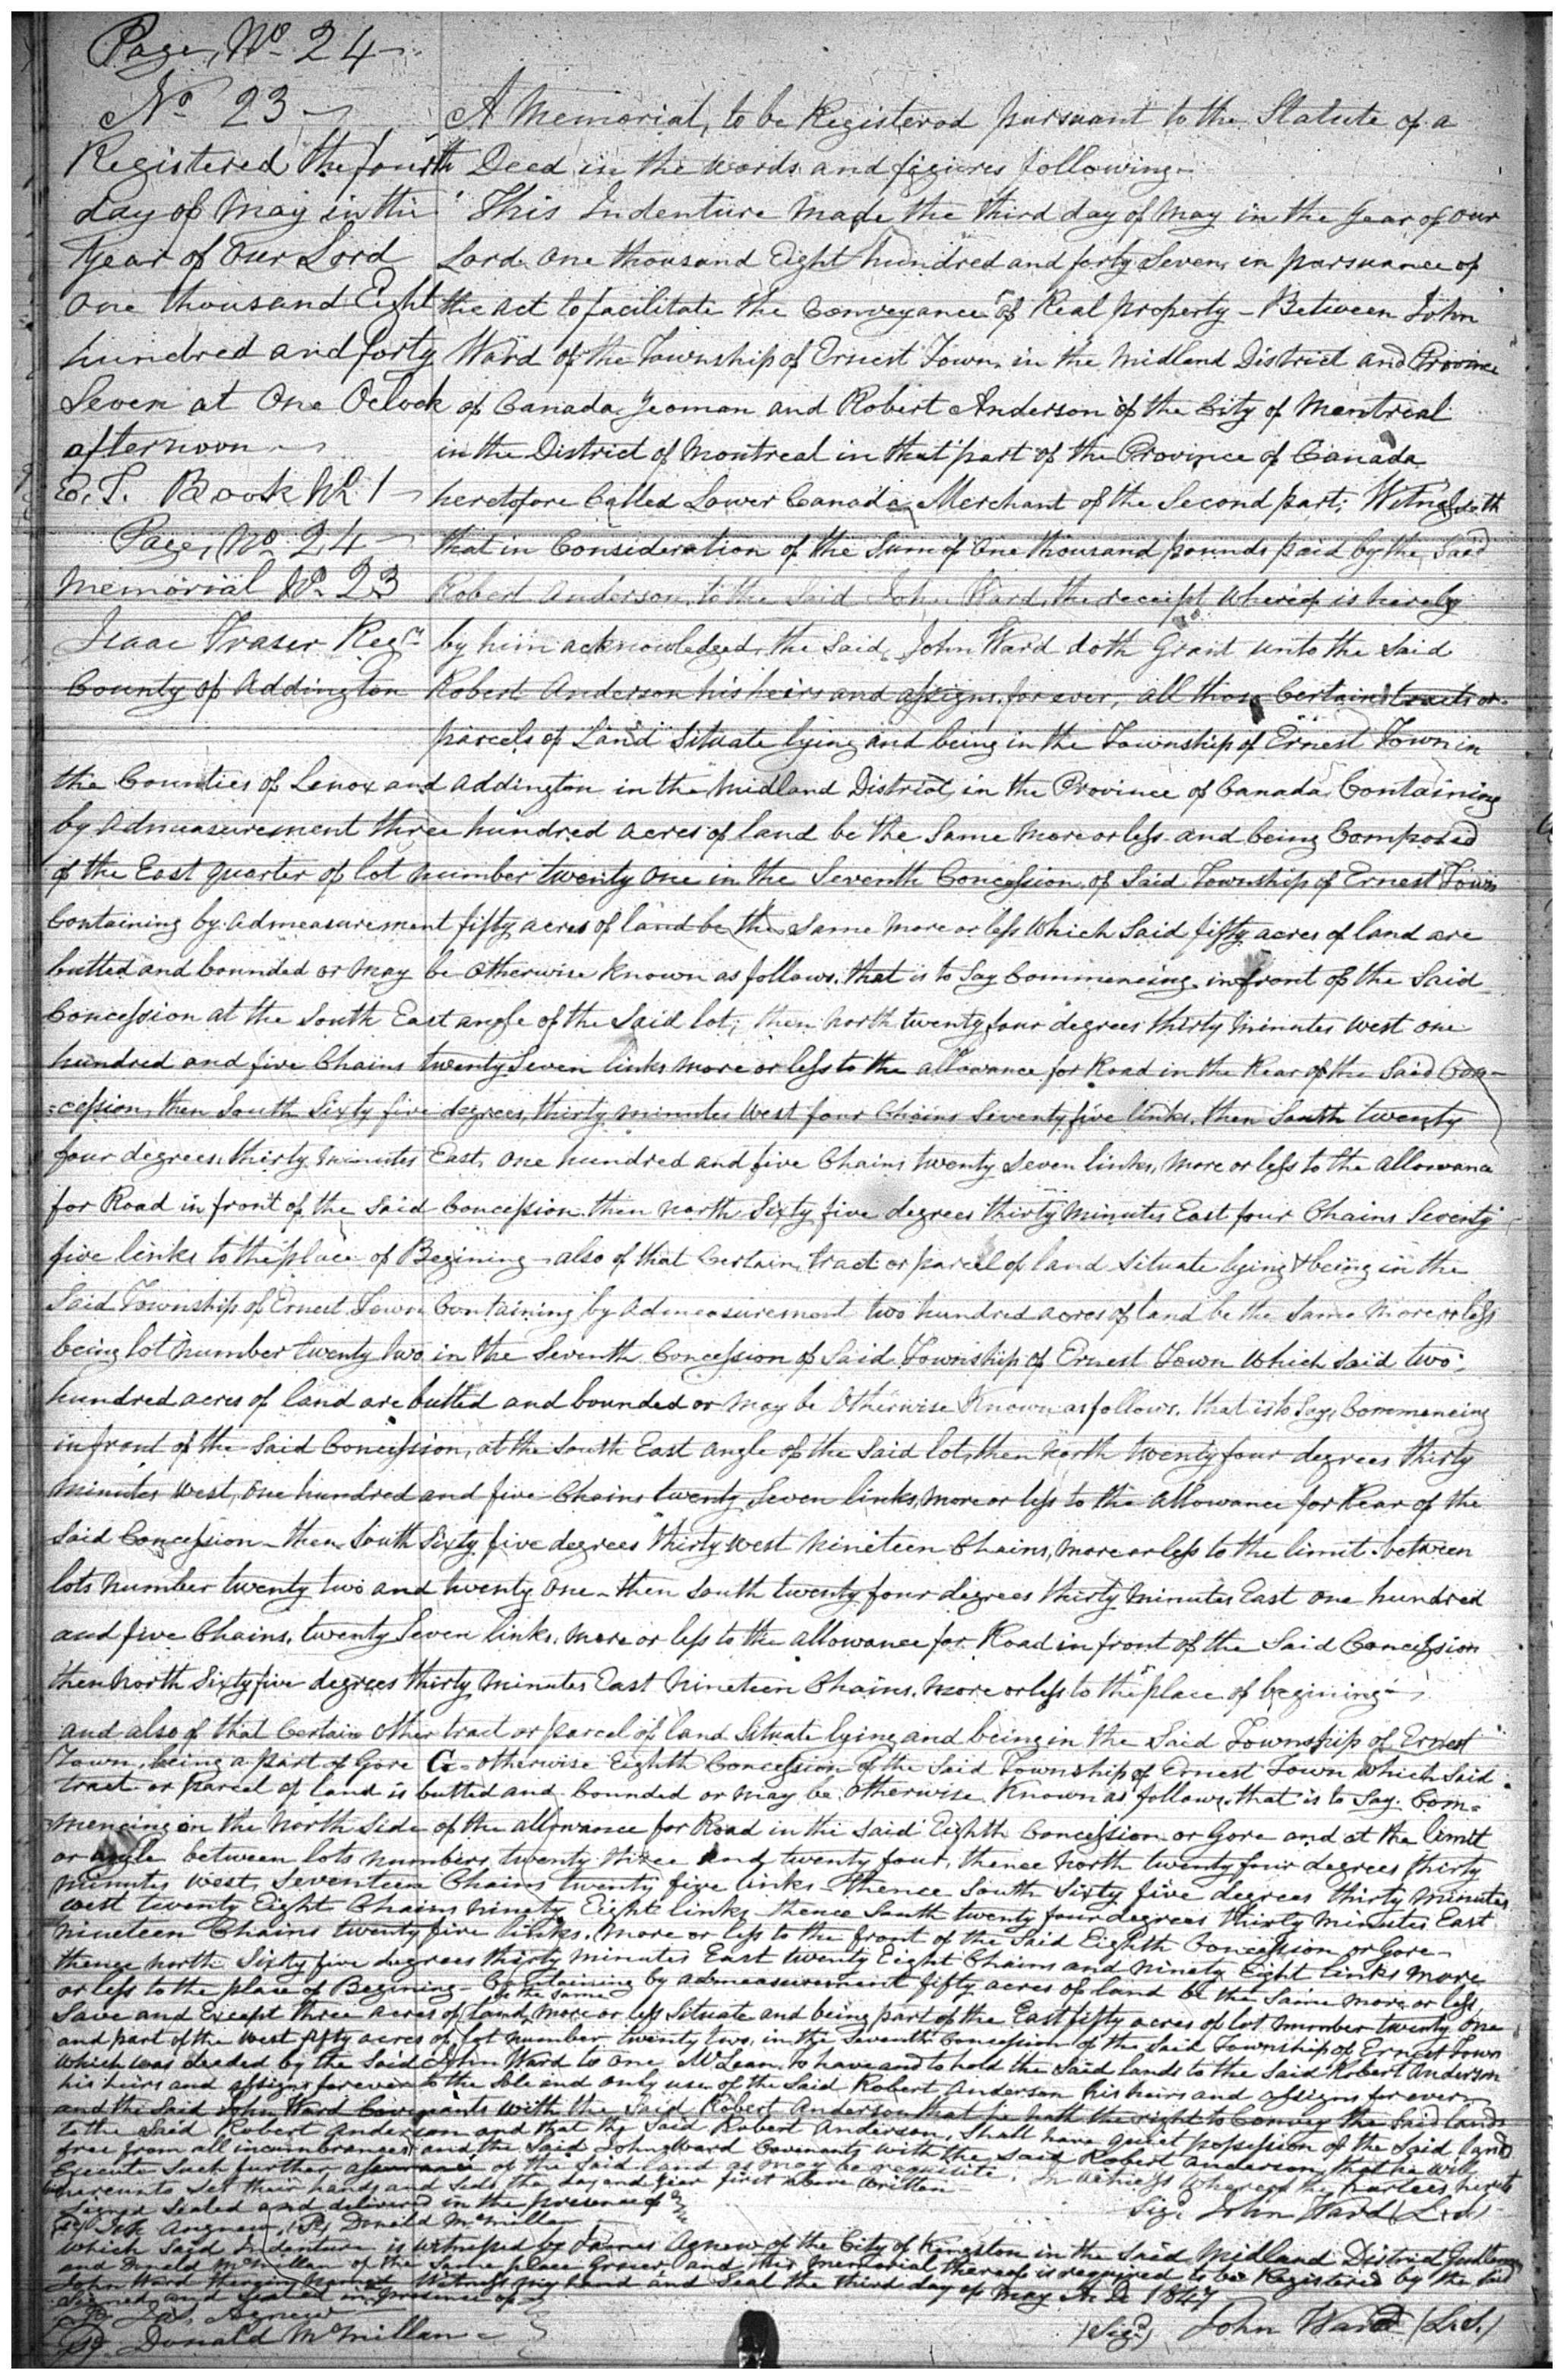 Page, No 24
No 23
Registered the fourth
day of May in the
Year of Our Lord
One thousand Eight
hundred and forty
Seven at One Oclock
afternoon
E. T. Book No 1
Page, No 24
Memorial No 23
Isaac Fraser Regr
County of Addington
A Memorial, to be Registered pursuant to the Statute of a
Deed in the words and figures following
This Indenture Made the third day of May in the year of our
Lord One thousand Eight hundred and forty Seven, in pursuance of
the act to facilitate the Conveyance of Real property - Between John
Ward of the Township of Ernest Town in the Midland District and Province
of Canada Yeoman and Robert Anderson of the City of Montreal
in the District of Montreal in that part of the Province of Canada
heretofore Called Lower Canada Merchant of the Second part; Witnesseth
that in Consideration of the Sum of One thousand pounds paid by the Said
Robert Anderson to the Said John Ward, the receipt whereof is hereby
by him acknowledged, the Said, John Ward doth Grant unto the Said
Robert Anderson his heirs and assigns for ever, all those Certain tracts or
parcels of Land Situate lying and being in the Township of Ernest Town in
the Counties of Lenox and Addington in the Midland District, in the Province of Canada, Containing
by Admeasurement three hundred acres of land be the Same More or less and being Composed
of the East quarter of lot number twenty One in the Seventh Concession of Said Township of Ernest Town
Containing by admeasurement fifty acres of land be the same more or less Which Said fifty acres of land are
butted and bounded or may be otherwise known as follows. that is to Say Commencing in front of the Said
Concession at the South East angle of the Said lot; then North twenty four degrees thirty minutes West one
hundred and five Chains twenty Seven links more or less to the allowance for Road in the Rear of the Said Con-
=cession, then South Sixty five degrees, thirty minutes West four Chains Seventy five links. then South twenty
four degrees, thirty minutes East, One hundred and five Chains twenty Seven links, More or less to the allowance
for Road in front of the Said Concession. then North Sixty five degrees thirty Minutes East four Chains Seventy
five links to the place of Begining - also of that Certain, tract or parcel of land Situate lying & being in the
Said Township of Ernest Town Containing by Admeasurement two hundred acres of land be the Same More or less
being lot Number twenty two in the Seventh Concession of Said Township of Ernest Town Which Said two
hundred acres of land are butted and bounded or may be Otherwise Known as follows. that is to Say, Commencing
in front of the Said Concession, at the South East angle of the Said lot, then North twenty four degrees thirty
minutes West, One hundred and five Chains twenty Seven links, more or less to the Allowance for Rear of the
Said Concession - then South Sixty five degrees thirty West Nineteen Chains, more or less to the limit between
lots number twenty two and twenty One - then South twenty four degrees thirty minutes East One hundred
and five Chains, twenty Seven links, More or less to the allowance for Road in front of the Said Concession
then North Sixty five degrees thirty Minutes East Nineteen Chains. More or less to the place of begining
and also of that Certain Other tract or parcel of land Situate lying and being in the Said Township of Ernest
Town, being a part of Gore G - otherwise Eighth Concession of the Said Township of Ernest Town Which Said
tract or parcel of land is butted and bounded or may be Otherwise Known as follows. that is to Say. Com=
mencing on the North Side of the allowance for Road in the Said Eighth Concession or Gore and at the limit
or angle between lots numbers, twenty three and twenty four, thence North twenty four degrees thirty
minutes West, Seventeen Chains twenty five links - thence South Sixty five degrees thirty Minutes
West twenty Eight Chains Ninety Eight links - thence South twenty four degrees thirty Minutes East
Nineteen Chains twenty five links. more or less to the front of the Said Eighth Concession or Gore -
thence North Sixty five degrees thirty minutes East twenty Eight Chains and Ninety Eight links more
or less to the place of Begining - Containing by admeasurement fifty acres of land be the Same more or less,
Save and Except three acres of land, be the Same more or less Situate and being part of the East fifty acres of lot number twenty One
and part of the West fifty acres of lot number twenty two, in the Seventh Concession of the Said Township of Ernest Town
Which was deeded by the Said John Ward to One McLean. to have and to hold the Said lands to the Said Robert Anderson
his heirs and assigns forever to the Sole and Only use of the Said Robert Anderson his heirs and assigns for ever
and the Said John Ward Covenants with the Said Robert Anderson that he hath the right to Convey the Said lands
to the Said Robert Anderson and that the Said Robert Anderson, Shall have quiet possession of the Said land
free from all incumbrances and the Said John Ward Covenants with the Said Robert Anderson, that he will
Execute Such further assurance of the Said land as may be requisite. In Witness Whereof the parties hereto
hereunto Set their hands and Seals the day and year first above Written
Signed Sealed and delivered in the presence of
Sigd John Ward (L.S.)
Agnew, Donald McMillan
Which Said Indenture is Witnessed by James Agnew of the City of Kingston in the Said Midland District Gentleman
and Donald McMillan of the Same place Grocer, and this Memorial thereof is required to be Registered by the Said
John Ward therein Named Witness my hand and Seal the third day of May A. D. 1847
Signed and Sealed in presence of
Jas. Agnew
Donald McMillan
(Sigd) John Ward (L.S.)